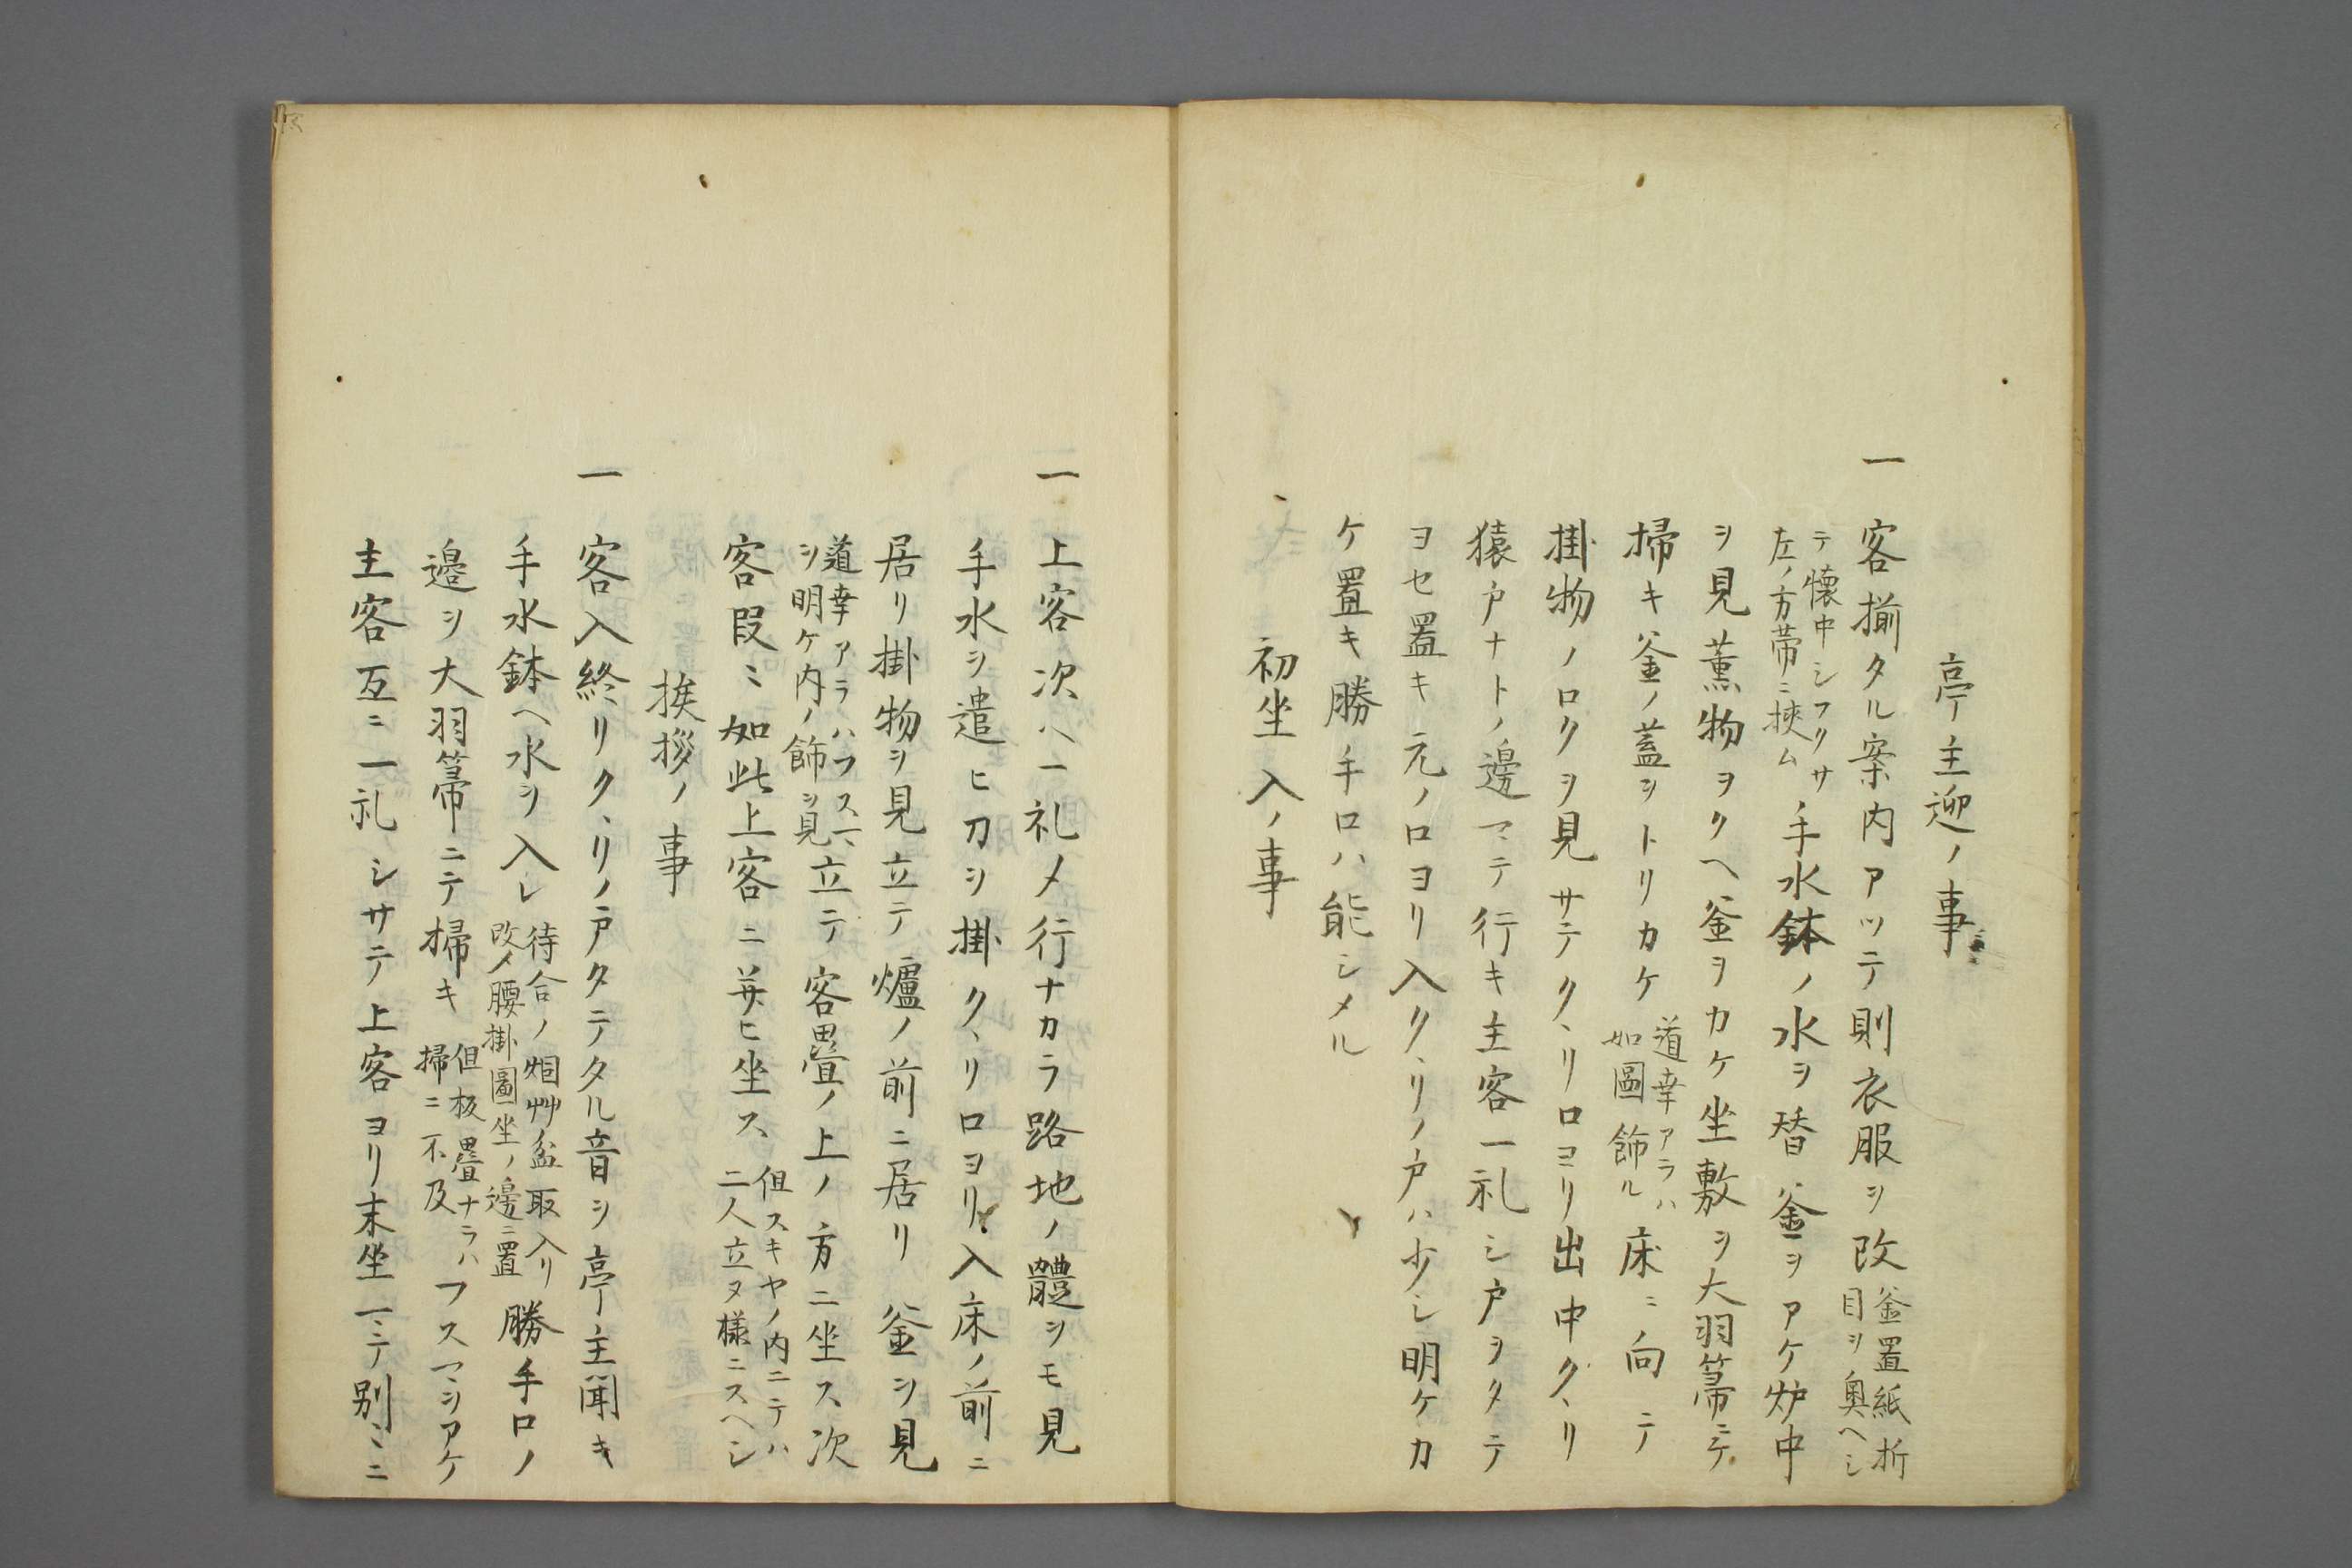 亭主迎ノ事
一
客揃タル案内アツテ則衣服ヲ改
釜置紙折
目ヲ奥ヘシ
テ懐中シフクサ
左ノ方帯ニ挾ム
手水鉢ノ水ヲ替釜ヲアケ炉中
ヲ見薫物ヲクヘ釜ヲカケ坐敷ヲ大羽箒ニテ
掃キ釜ノ蓋ヲトリカケ
道幸アラハ
如圖飾ル
床ニ向テ
掛物ノロクヲ見サテクヽリ口ヨリ出中クヽリ
猿戸ナトノ邊マテ行キ主客一礼シ戸ヲタテ
ヨセ置キ元ノ口ヨリ入クヽリノ戸ハ少シ明ケカ
ケ置キ勝手口ハ能シメル
初坐入ノ事
一
上客次ヘ一礼〆行ナカラ路地ノ體ヲモ見
手水ヲ遣ヒ刀ヲ掛クヽリ口ヨリ入床ノ前ニ
居リ掛物ヲ見立テ爐ノ前ニ居リ釜ヲ見
道幸アラハフスマ
ヲ明ケ内ノ飾ヲ見
立テ客畳ノ上ノ方ニ坐ス次
客段ミ如此上客ニ並ヒ坐ス
但スキヤノ内ニテハ
二人立ヌ様ニスヘシ
挨拶ノ事
一
客入終リクヽリノ戸タテタル音ヲ亭主聞キ
手水鉢ヘ水ヲ入レ
待合ノ烟艸盆取入リ
改メ腰掛圓坐ノ邊ニ置
勝手口ノ
邉ヲ大羽箒ニテ掃キ
但板畳ナラハ
掃ニ不及
フスマヲアケ
主客互ニ一礼シサテ上客ヨリ末坐マテ別ミニ